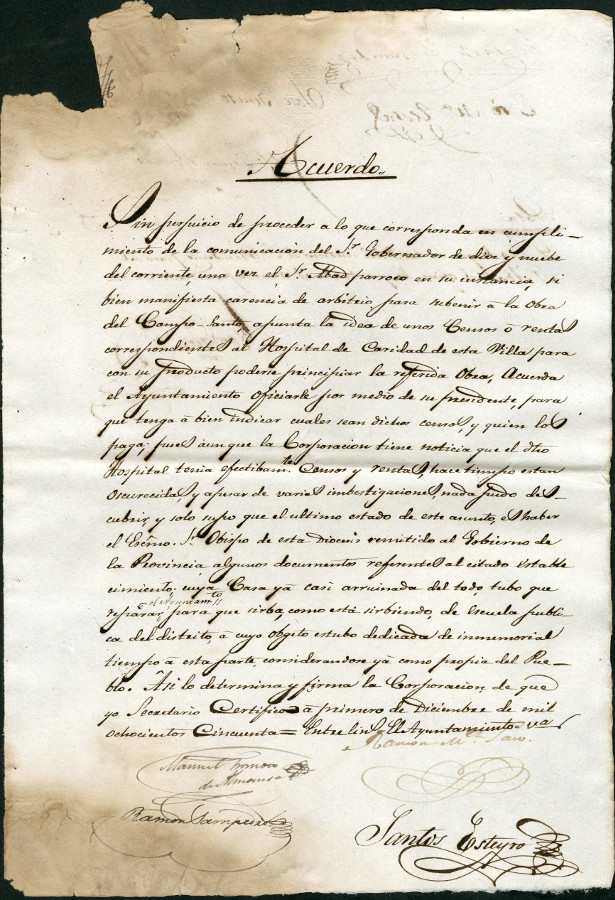 Acuerdo.
Sin perjuicio de proceder a lo que corresponda en cumpli-
miento de la comunicacion del Sr. Gobernador de diez y nuebe
del corriente, una vez el Sr. Abad parroco en su instancia, si
bien manifiesta carencia de arbitrio para subenir à la Obra
del Campo-Santo, apunta la idea de unos Censos ò rentas
correspondientes al Hospital de Caridad de esta Villa para
con su producto poderse principiar la referida Obra, Acuerda
el Ayuntamiento Oficiarle por medio de su presidente, para
que tenga à bien indicar cuales sean dichos censos, y quien los
paga; pues àun que la Corporacion tiene noticia que el dho
Hospital tenia efectibamte. Censos y rentas, hace tiempo estan
oscurecidas, y apesar de varias imbestigaciones, nada pudo des-
cubrir, y solo supo que el ultimo estado de este asunto, es haber
el Escmo. Sr. Obispo de esta Diocesis remitido al Gobierno de
la Provincia algunos documentos referentes al citado estable
cimiento; cuya Casa yà casi arruinada del todo, tubo que
el Ayuntamto
reparar, para que sirba, como està sirbiendo, de escuela publi-
ca del distrito, à cuyo obgeto estubo dedicada de inmemorial
tiempo à esta parte, considerandose yà como propia del Pue-
blo. Asi lo determina y firma la Corporacion, de que
yo Secretario Certifico à primero de Diciembre de mil
ochocientos Cincuenta = Entre lin. el Ayuntamiento = va
Ramon Ma.
Manuel
Ramon Sampedro
Santos Esteyro